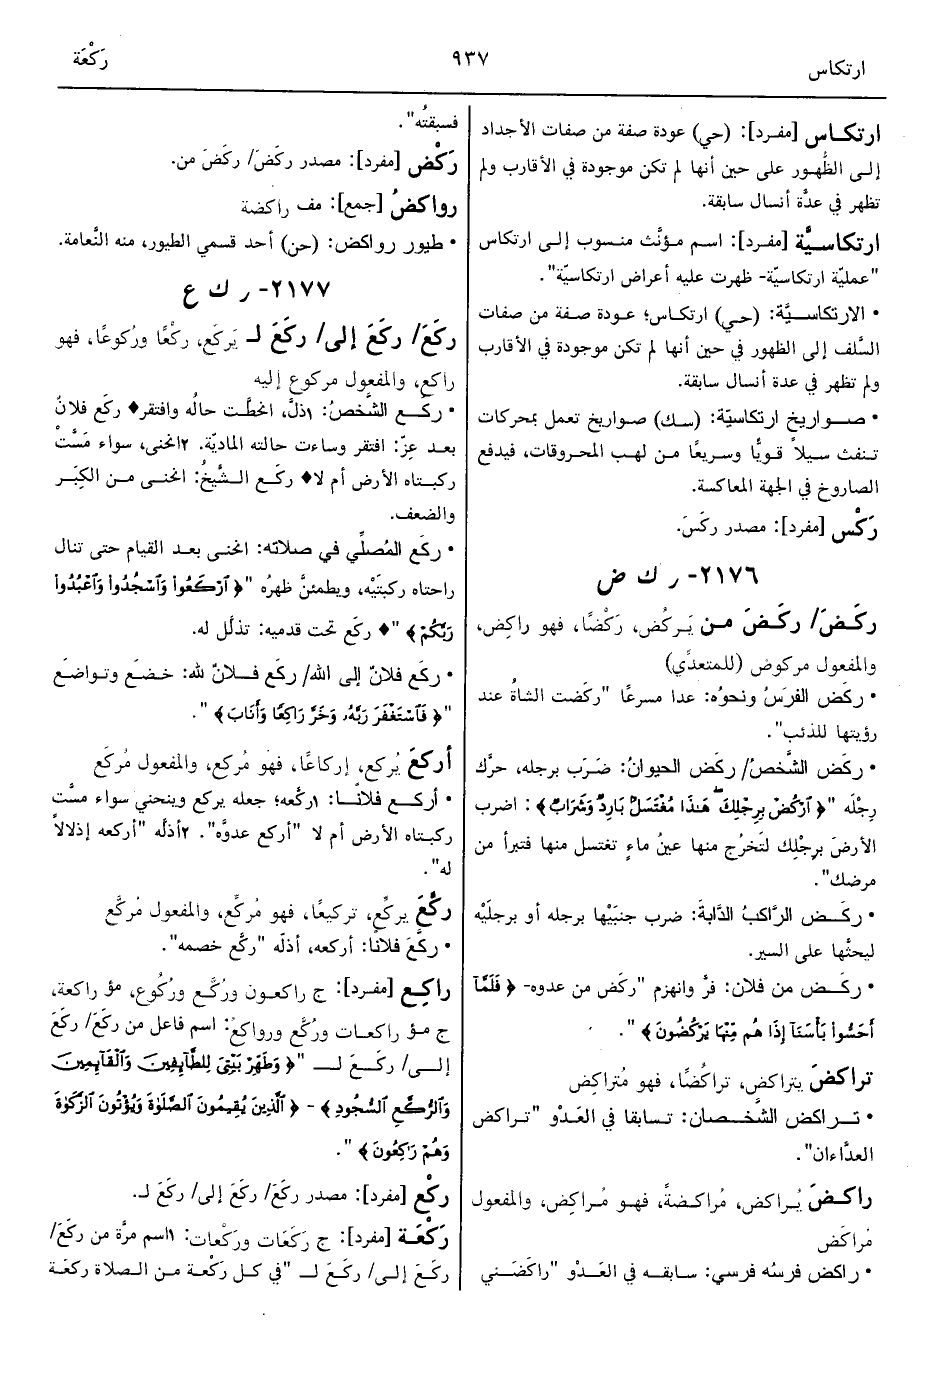 ارتكاس
٩٣٧
رَكْعَة
ارتكاس [مفرد]: (حي) عودة صفة من صفات الأجداد
إلى الظُّهور على حين أنها لم تكن موجودة في الأقارب ولم
تظهر في عدَّة أنسال سابقة.
ارتكاسيَّة [مفرد]: اسم مؤنَّث منسوب إلى ارتكاس
"عمليّة ارتكاسيّة- ظهرت عليه أعراض ارتكاسيّة".
• الارتكاسيَّة: (حي) ارتكاس؛ عودة صفة من صفات
السَّلف إلى الظهور في حين أنها لم تكن موجودة في الأقارب
ولم تظهر في عدة أنسال سابقة.
• صواريخ ارتكاسيّة: (سك) صواريخ تعمل بمحركات
تنفث سيلاً قويًّا وسريعًا من لهب المحروقات، فيدفع
الصاروخ في الجهة المعاكسة.
رَكْس [مفرد]: مصدر ركَسَ.
٢١٧٦- ر ك ض
ركَضَ/ ركَضَ من يَركُض، رَكْضًا، فهو راكِض،
والمفعول مركوض (للمتعدِّي)
• ركَض الفرَسُ ونحوُه: عدا مسرعًا "ركَضت الشاةُ عند
رؤيتها للذئب".
• ركَض الشَّخصُ/ ركَض الحيوانُ: ضرَب برجله، حرَّك
رِجْلَه "﴿ ٱرْكُضْ بِرِجْلِكَ هَٰذَا مُغْتَسَلٌ بَارِدٌ وَشَرَابٌ ﴾: اضرب
الأرضَ برِجْلِك لتَخرُج منها عينُ ماءٍ تغتسل منها فتبرأ من
مرضك".
• ركَض الرَّاكبُ الدَّابةَ: ضرب جنبَيْها برجله أو برجلَيْه
ليحثَّها على السير.
• ركَض من فلان: فرَّ وانهزم "ركَض من عدوه- ﴿ فَلَمَّآ
أَحَسُّوا بَأْسَنَآ إِذَا هُم مِّنْهَا يَرْكُضُونَ ﴾".
تراكضَ يتراكض، تراكُضًا، فهو مُتراكِض
• تراكض الشَّخصان: تسابقا في العَدْو "تراكض
العدَّاءان".
راكضَ يُراكض، مُراكضةً، فهو مُراكِض، والمفعول
مُراكَض
• راكض فرسُه فرسي: سابقه في العَدْو "راكضَني
فسبقتُه".
رَكْض [مفرد]: مصدر ركَضَ/ ركَضَ من.
رواكضُ [جمع]: مف راكضة
• طيور رواكض: (حن) أحد قسمي الطيور، منه النَّعامة.
٢١٧٧- ر ك ع
ركَعَ/ ركَعَ إلى/ ركَعَ لـ يَركَع، ركْعًا ورُكوعًا، فهو
راكِع، والمفعول مركوع إليه
• ركَع الشَّخصُ: ١ذلَّ، انحطَّت حالُه وافتقر♦ ركَع فلانٌ
بعد عِزّ: افتقر وساءت حالته الماديّة. ٢انحنى، سواء مَسَّتْ
ركبتاه الأرض أم لا♦ ركَع الشَّيخُ: انحنى من الكِبَر
والضعف.
• ركَع المُصلِّي في صلاته: انحنى بعد القيام حتى تنال
راحتاه ركبتَيْه، ويطمئنَّ ظهرُه "﴿ ٱرْكَعُوا وَٱسْجُدُوا وَٱعْبُدُوا
رَبَّكُمْ ﴾"♦ ركَع تحت قدميه: تذلَّل له.
• ركَع فلانٌ إلى الله/ ركَع فلانٌ لله: خضَع وتواضَع
"﴿ فَٱسْتَغْفَرَ رَبَّهُۥ وَخَرَّ رَاكِعًا وَأَنَابَ ﴾".
أركعَ يُركع، إركاعًا، فهو مُركِع، والمفعول مُركَع
• أركع فلانًا: ١ركَّعه؛ جعله يركع وينحني سواء مسَّت
ركبتاه الأرض أم لا "أركع عدوَّه". ٢أذلّه "أركعه إذلالاً
له".
ركَّعَ يركِّع، تركيعًا، فهو مُركِّع، والمفعول مُركَّع
• ركَّعَ فلانًا: أركعه، أذلّه "ركَّع خصمه".
راكِع [مفرد]: ج راكعون ورُكَّع ورُكُوع، مؤ راكعة،
ج مؤ راكعات ورُكَّع ورواكعُ: اسم فاعل من ركَعَ/ ركَعَ
إلى/ ركَعَ لـ "﴿ وَطَهِّرْ بَيْتِيَ لِلطَّآئِفِينَ وَٱلْقَآئِمِينَ
وَٱلرُّكَّعِ ٱلسُّجُودِ ﴾- ﴿ ٱلَّذِينَ يُقِيمُونَ ٱلصَّلَوٰةَ وَيُؤْتُونَ ٱلزَّكَوٰةَ
وَهُمْ رَاكِعُونَ ﴾".
ركْع [مفرد]: مصدر ركَعَ/ ركَعَ إلى/ ركَعَ لـ.
رَكْعَة [مفرد]: ج رَكَعَات ورَكْعات: ١اسم مرَّة من ركَعَ/
ركَعَ إلى/ ركَعَ لـ "في كل ركْعة من الصلاة ركعة